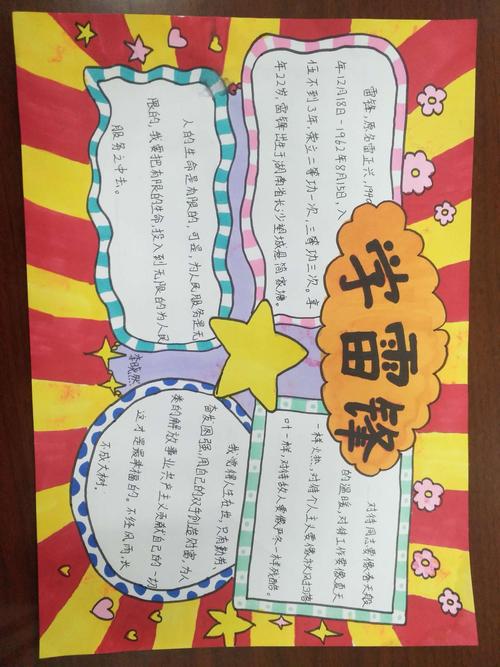 学雷锋
雷锋,原名雷正兴,1940
年12月18日-1962年8月15日,入
伍不到3年,荣立二等功一次,三等功三次。享
年22岁,雷锋出生于湖南省长沙望城县简家塘。
对待同志要像春天般
的温暖,对待工作要像夏天
一样火热,对待个人主义要像秋风扫落
叶一样,对待敌人要像严冬一样残酷。
人的生命是有限的,可是,为人民服务是无
限的,我要把有限的生命,投入到无限的为人民
服务之中去。
我觉得人生在世,只有勤劳、
奋发图强,用自己的双手创造财富,为人
类的解放事业共产主义贡献自己的一切
这才是最幸福的。不经风雨,长
不成大树。